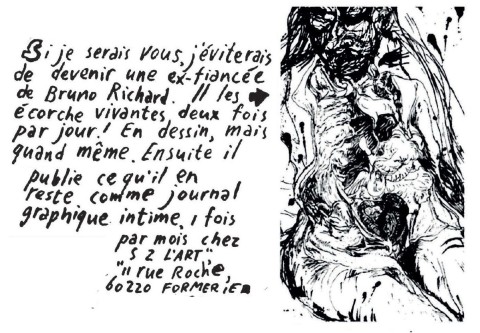 Si je serais vous, j'éviterais
de devenir une ex-fiancée
de Bruno Richard. Il les
écorche vivantes, deux fois
par jour! En dessin, mais
quand même. Ensuite il
publie ce qu'il en
reste comme journal
graphique intime. 1 fois
par mois chez
S 2 L'ART,
"11 rue Roche,
60220 FORMERIE